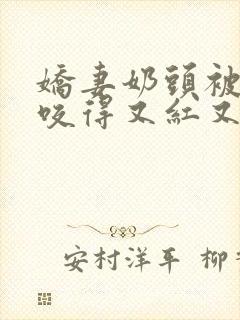 嬌妻奶頭被
咬得又紅又
安村洋平 柳